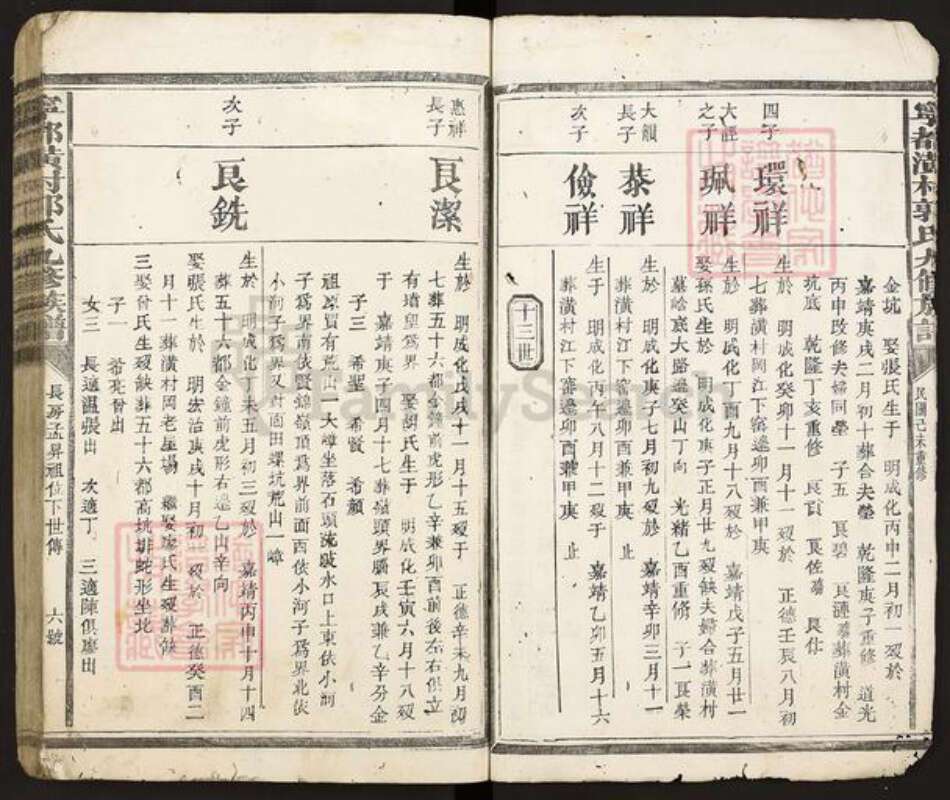 寧都潢村郭氏九修族譜
民國己未重修
金坑 娶張氏生于 明成化丙申二月初一歿於
嘉靖庚戌二月初十葬合夫塋 乾隆庚子重修 道光
丙申改修夫婦同塋 子五 良碧 良漣 葬潢村金
坑底 乾隆丁亥重修 良貢 良佐 良仕
四子
環祥
生於 明成化癸卯十一月十一歿於 正德壬辰八月初
七葬潢村岡江下窰邊卯酉兼甲庚
大
之子
珮祥
生於 明成化丁酉九月十八歿於 嘉靖戊子五月廿一
娶孫氏生於 明成化庚子正月廿九歿缺夫婦合葬潢村
墓峆底大路邊癸山丁向 光緒乙酉重修 子一良榮
大韻
長子
泰祥
生於 明成化庚子七月初九歿於 嘉靖辛卯三月十一
葬潢村江下窰邊卯酉兼甲庚 止
次子
儉祥
生于 明成化丙午八月十二歿于 嘉靖乙卯五月十六
葬潢村江下窰邊卯酉兼甲庚 止
十三世
惠祥
長子
良潔
生於 明成化戊戌十一月十五歿于 正德辛未九月初
七葬五十六都金鐘前虎形乙辛兼卯酉前後左右俱立
有墻望為界 娶胡氏生于 明成化壬寅六月十八歿
于 嘉靖庚子四月十七葬嶺頭界腦辰戌兼乙辛分金
子三 希聖 希賢 希顏
祖原買有荒山一大嶂坐落石頭陂水口上東依小河
子為界南依賢嶺頂為界前面西依小河子為界北依
小河子為界又對面田螺坑荒山一嶂
次子
良銑
生於 明成化丁未五月初三歿於 嘉靖丙申十月十四
葬五十六都金鐘前虎形右邊乙山辛向
娶張氏生於 明宏治庚戌十月初 歿於 正德癸酉二
月十一葬潢村岡老屋場 繼娶廖氏生歿葬缺
三娶曾氏生歿缺葬五十六都高坑排蛇形坐北
子一 希亮曾出
女三 長適溫張出 次適丁 三適陳俱廖出
寧都潢村郭氏九修族譜
長房孟昇祖位下世傳
六號
FamilySearch